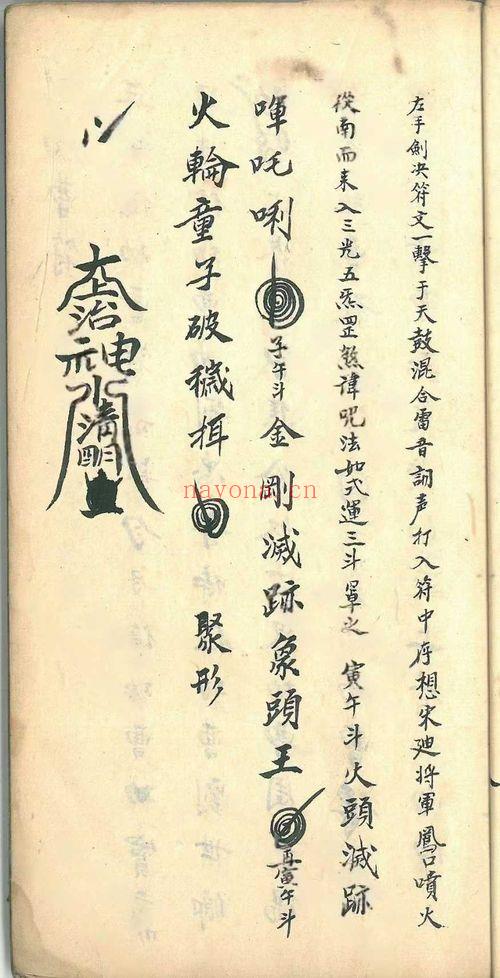 左手劍決符文一擊于天鼓混合雷音訓声打入符中存想宋廸將軍鳳口噴火
從南而来入三光五炁罡煞諱呪法如式運三斗罩之 寅午斗火頭滅跡
㖷吒唎 子午斗 金剛滅跡象頭王 再寅午斗
火輪童子破穢 聚形
治
电神元
水
清明
nayona.cn